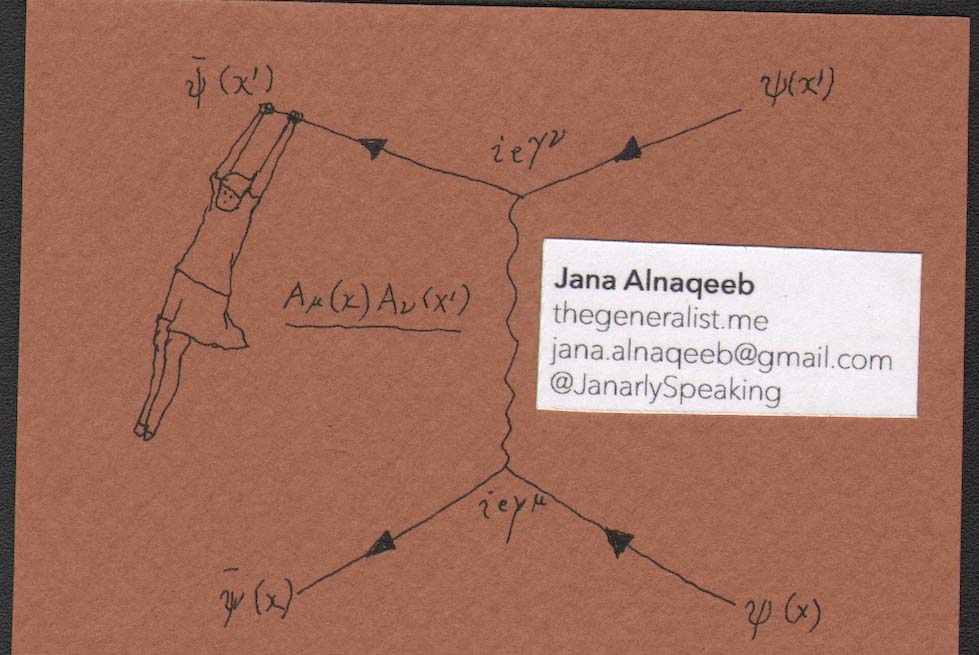 ψ̄(x')
ψ(x')
ieγ^ν
A_μ(x)A_ν(x')
Jana Alnaqeeb
thegeneralist.me
jana.alnaqeeb@gmail.com
@JanarlySpeaking
ieγ^μ
ψ̄(x)
ψ(x)